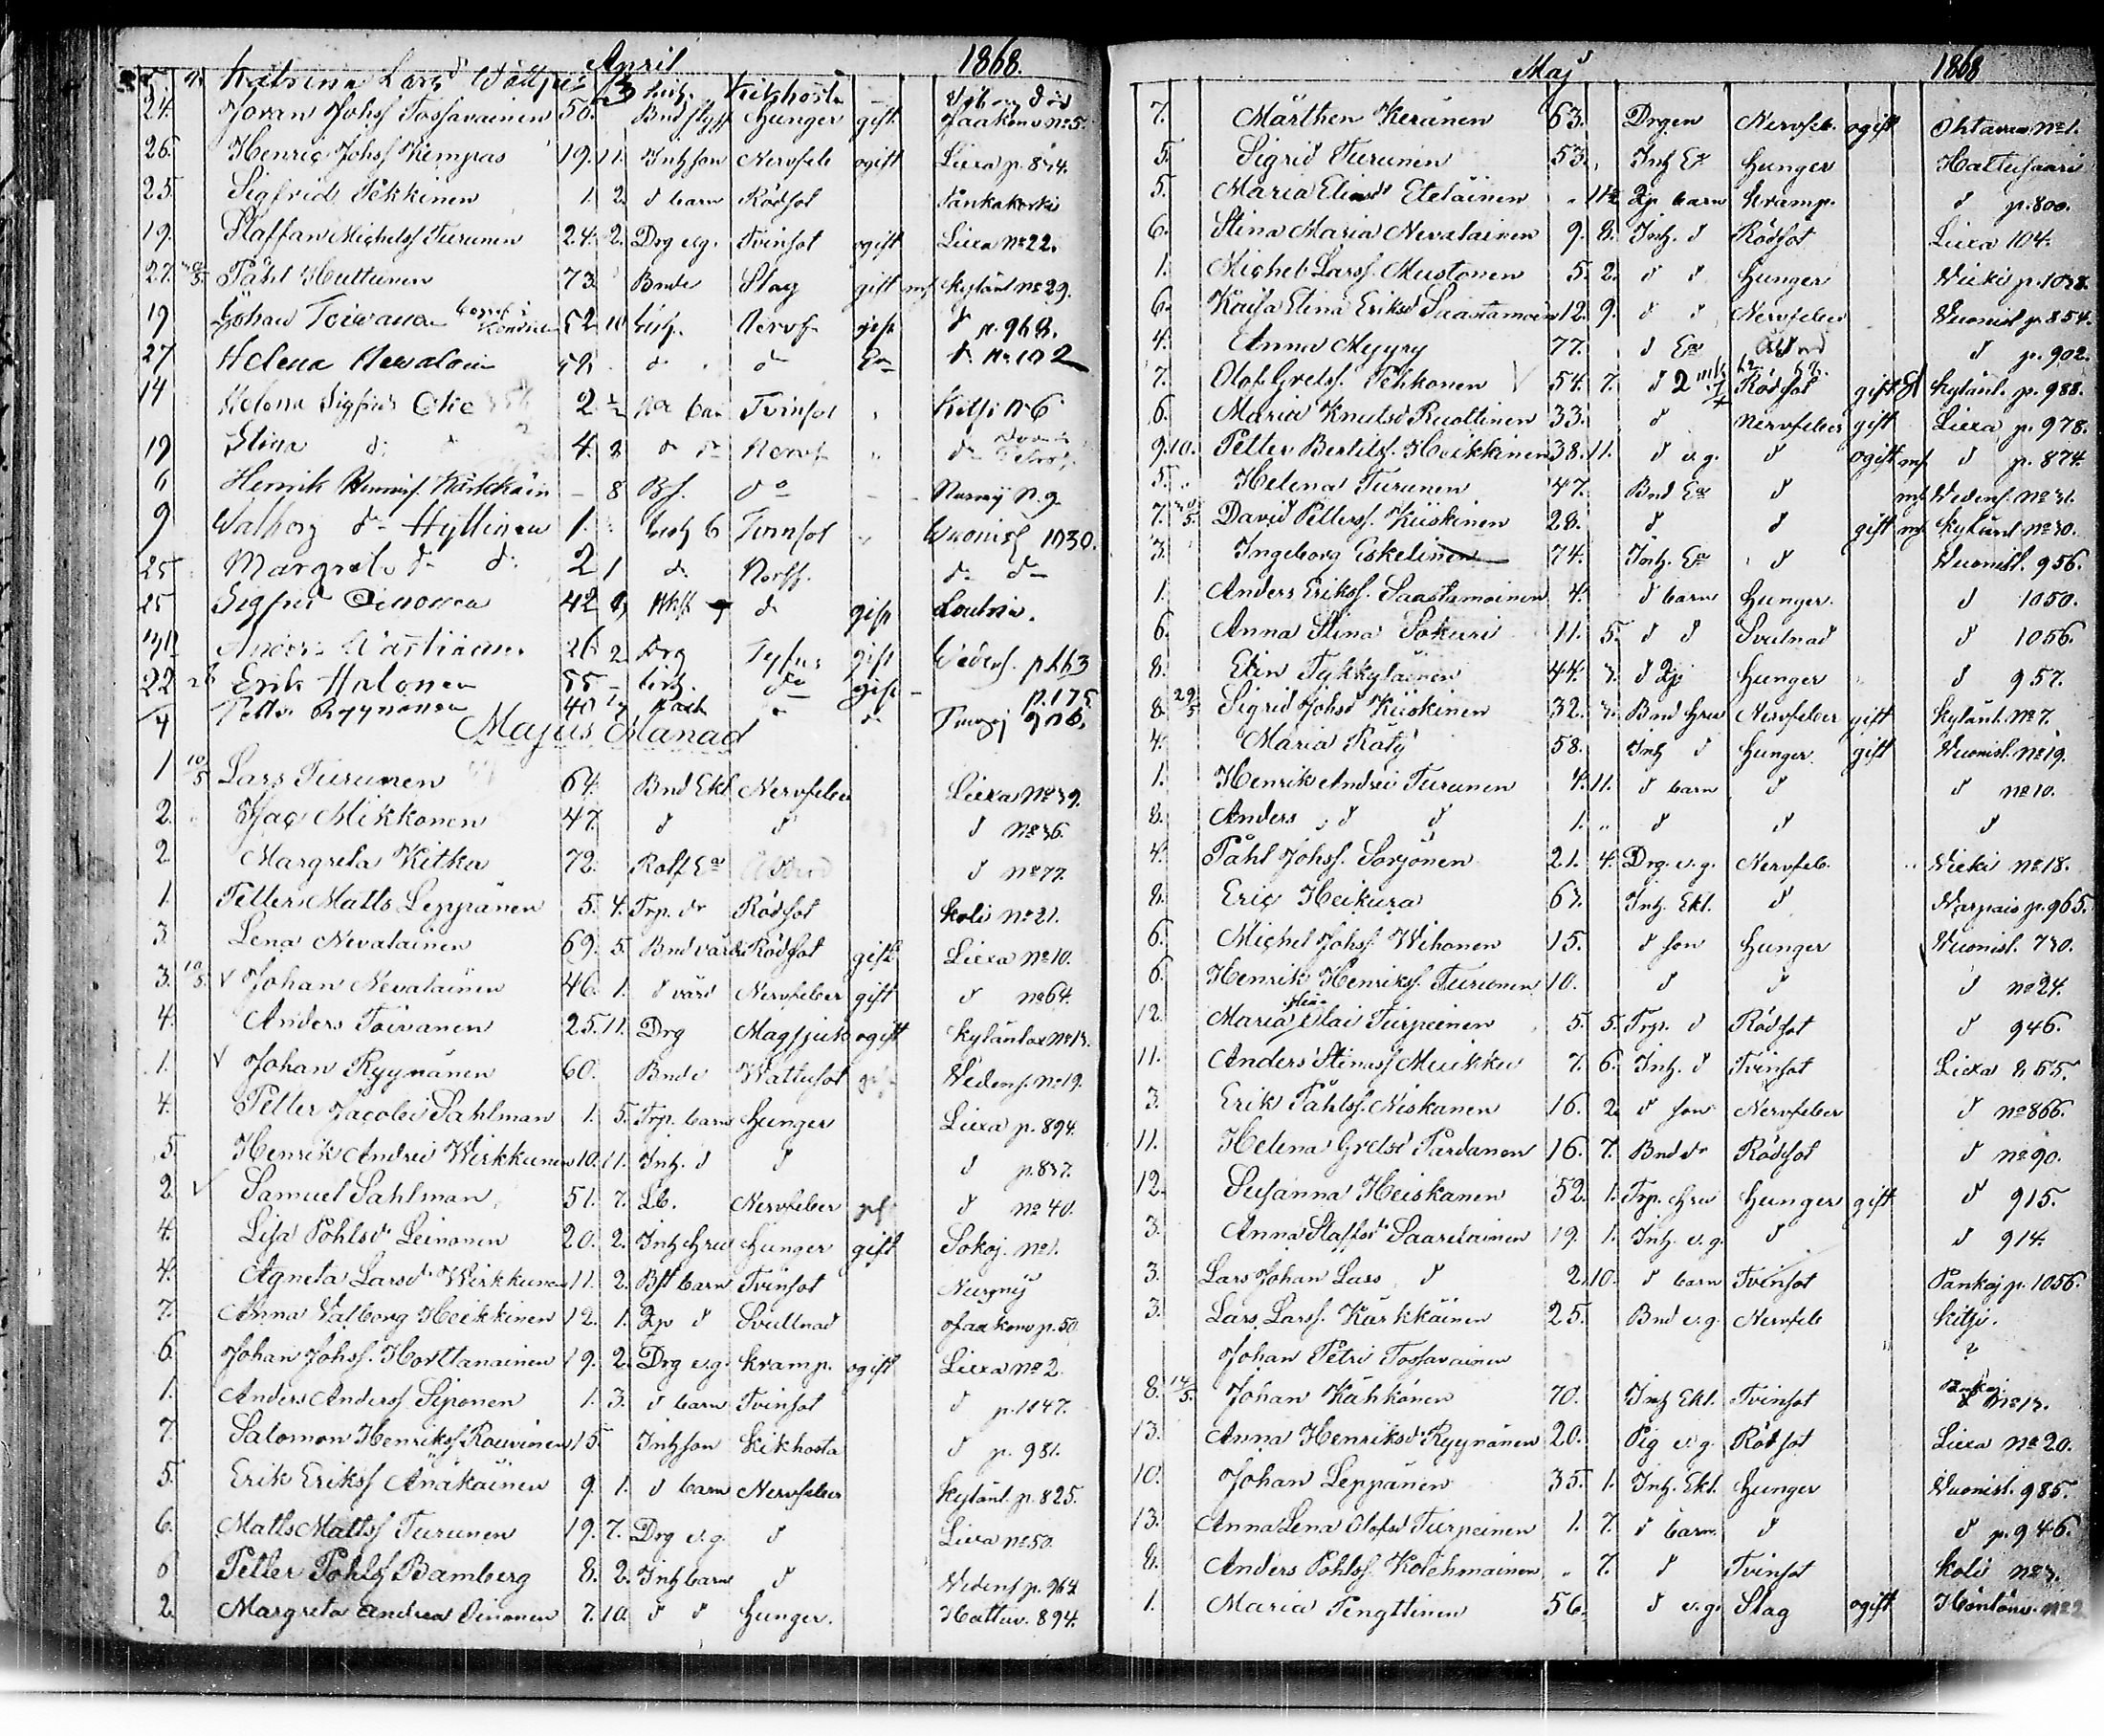 April 1868.
Katrina Larsd 13 Inh. Kikhosta
24. Jöran Johss Tossavainen 50. Bnd Hunger gift. Jaakono No 5.
26. Henric Johss Kempas 19. 11. Inhson Nervfeb ogift Liexa p. 874.
25. Sigfrid Pekkinen 1. 2. d barn Rödsot Pankakoski
19. Staffan Michelss Turunen 24. 2. Drg v.g. Tvinsot ogift Liexa No 22.
27. Påhl Huttunen 73 Bnde Slag gift mf Kylänl No 29.
19 Johan Toivanen 52 10 Inh. Nervf gift d p. 968.
27 Helena Nevalain d d
14 Helena Sigfrids 2 barn Tvinsot Kitsi No 6
19 Stina d 4. 8 d d Nervf d
6 Henrik Henrics. Kärkkäin – 8 do Nurmij N. 9.
9 Walborg d Hyttinen 1. Inh b Tvinsot Wuonisl 1030.
25 Margret d d 2 1 d d d
25 Sigfrid Oinonen 42 d gift
Anders 26 2 Drg Tyfus gift Wedens. p 163
22 Erik Halonen 55 – Inh. do gift – p. 175
4 Pettr Ryynänen 40 d 906.
Majus Månad
1 10/5 Lars Turunen 64. Bnd Ekl Nervfeber Liexa No 39.
2. Isac Mikkonen 47. d d d No 36.
2. Margreta Kitka 72. Ålderd d No 77.
1. Petter Matts Leppänen 5. 4. Trp. dr Rödsot Koli No 21.
3. Lena Nevalainen 69. 5. Bnd värd Rödsot gift Liexa No 10.
3. 10/5. v Johan Nevalainen 46. 1. d värd Nervfeber gift d No 64.
4. Anders Toivanen 25. 11. Drg Magsjuk ogift Kyläntaa No 13.
1. v Johan Ryynänen 60. Bnde Wattusot gift Wedens. No 19.
4. Petter Jacobs Sahlman 1. 5. Trp. barn Hunger Liexa p. 894.
5. Henrik Andrei Wirkkunen 10. 11. Inh. d d d p. 837.
2. v Samuel Sahlman 51. 7. Lb. Nervfeber gift d No 40.
4. Lisa Pohlsd Leinonen 20. 2. Inh hru Hunger gift Sokoj. No 1.
4. Agneta Larsd Wirkkunen 11. 2. Bst barn Tvinsot Nurmij
7. Anna Walborg Heikkinen 12. 1. Lp d Svullnad Jaakono p. 50
6. Johan Johss. Horttanainen 19. 2. Drg v.g. Kramp. ogift Liexa No 2.
1. Anders Anderss Siponen 1. 3. d barn Tvinsot d p. 1047.
7. Salomon Henrikss Rouvinen 15 Inhson Kikhosta d p. 981.
5. Erik Erikss Änäkäinen 9. 1. d barn Nervfeber Kylänl. p. 825.
6. Matts Mattss Turunen 19. 7. Drg v.g. d Liexa No 50.
6 Petter Pohlss Bamberg 8. 2. Inh barn d Wedens p. 964
2. Margreta Andrea Oinonen 7. 10. d d Hunger. Hattuv. 894.
Maj 1868
7. Märthen Keränen 63. Drgen Nervfeb. ogift Ohtavaa No 1.
5. Sigrid Turunen 53. Inh Ea Hunger Hattusaari
5. Maria Elina Eteläinen Lp barn Kramp. d p. 800.
6. Stina Maria Nevalainen 9. 8. Inh. d Rödsot Liexa 104.
1. Michel Larss. Mustonen 5. 2. d d Hunger Wieki p. 1038.
6. Kaisa Stina Eriksd Saastamoin 12. 9. d d Nervfeber Wuonisl p. 854.
4. Anna Myyry 77. d Ea Ålderd d p. 902.
7. Olof Grelss. Pehkonen v 54. 7. d Rödsot gift Kylänl. p. 988.
6. Maria Knutsd Ruottinen 33. d Nervfeber gift Liexa p. 978.
9. 10. Petter Bertilss. Heikkinen 38. 11. d v.g. d ogift mf d p. 874.
5. Helena Turunen 47. Bnd Ea d mf Wedens. No 31.
7. 10/5. David Petterss. Kiiskinen 28. d d gift mf Kylänl No 30.
3. Ingeborg Eskelinen 74. Inh. Ea d Wuonisl. 956.
1. Anders Erikss. Saastamoinen 4. d barn Hunger. d 1050.
6. Anna Stina Sokuri 11. 5. d d Svulnad d 1056.
8. Elin Tykkyläinen 44. 3. d Lp Hunger d 957.
8. 29/5 Sigrid Johsd Kiiskinen 32. 3. Bnd hru Nervfeber gift Kylänl. No 7.
4. Maria Räty 58. Inh d Hunger gift Wuonisl. No 19.
1. Henrik Andrei Turunen 4. 11. d barn d d No 10.
8. Anders d d 1. d d d
4. Påhl Johss. Sorjonen 21. 4. Drg. v.g. Nervfeb. Wieki No 18.
8. Eric Heikura 67. Inh. Ekl. d Warpais p. 965.
6. Michel Johss. Wihonen 15. d son Hunger Wuonisl. 730.
6. Henrik Henrikss. Turunen 10. d d d No 24.
12. Maria Mai Turpeinen 5. 5. Trp. d Rödsot d 946.
11. Anders Stinass Muikku 7. 6. Inh. d Tvinsot Liexa 865.
3. Erik Påhlss. Niskanen 16. 2. d son Nervfeber d No 866.
11. Helena Grelsd Pardanen 16. 7. Bnd dr Rödsot d No 90.
12. Susanna Heiskanen 52. 1. Trp. hru Hunger gift d 915.
3. Anna Staffsd Saarelainen 19. 1. Inh. v.g. d d 914.
3. Lars Johan Lars d 2. 10. d barn Tvinsot Pankaj p. 1056.
3. Lars Larss. Kärkkäinen 25. Bnd v.g. Nervfeb Kitsi.
Johan Petri Tossavainen ?
8. 14/5. Johan Kähkönen 70. Inh Ekl. Tvinsot No 13.
13. Anna Henriksd Ryynänen 20. Pig v.g. Rödsot Liexa No 20.
10. Johan Leppänen 35. 1. Inh. Ekl. Hunger Wuonisl. 985.
13. Anna Lena Olofsd Turpeinen 1. 7. d barn. d d p. 946.
8. Anders Pohlss. Kolehmainen 7. d Tvinsot Koli No 3.
1. Maria Pengttinen 56. d v.g. Slag ogift No 2